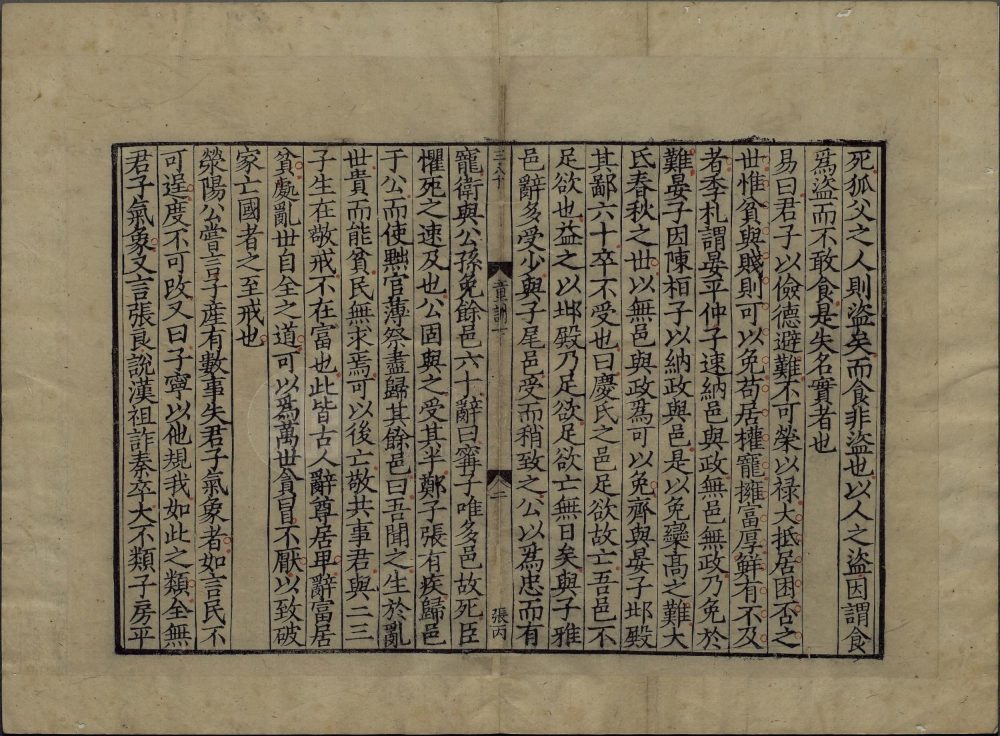 死狐父之人則盜矣而食非盜也以人之盜因謂食
爲盜而不敢食是失名實者也
易曰君子以儉德避難不可榮以祿大抵居困否之
世惟貧與賤則可以免苟居權寵擁富厚鮮有不及
者季札謂晏平仲子速納邑與政無邑無政乃免於
難晏子因陳桓子以納政與邑是以免欒高之難大
氐春秋之世以無邑與政爲可以免齊與晏子邶殿
其鄙六十卒不受也曰慶氏之邑足欲故亡吾邑不
足欲也益之以邶殿乃足欲足欲亡無日矣與子雅
邑辭多受少與子尾邑受而稍致之公以爲忠而有
三八十
童訓下
二
張丙
寵衛與公孫免餘邑六十辭曰甯子唯多邑故死臣
懼死之速及也公固與之受其半鄭子張有疾歸邑
于公而使黜官薄祭盡歸其餘邑曰吾聞之生於亂
世貴而能貧民無求焉可以後亡敬共事君與二三
子生在敬戒不在富也此皆古人辭尊居卑辭富居
貧處亂世自全之道可以爲萬世貪冒不厭以致破
家亡國者之至戒也
滎陽公嘗言子產有數事失君子氣象者如言民不
可逞度不可改又曰子寧以他規我如此之類全無
君子氣象又言張良說漢祖詐秦卒大不類子房平